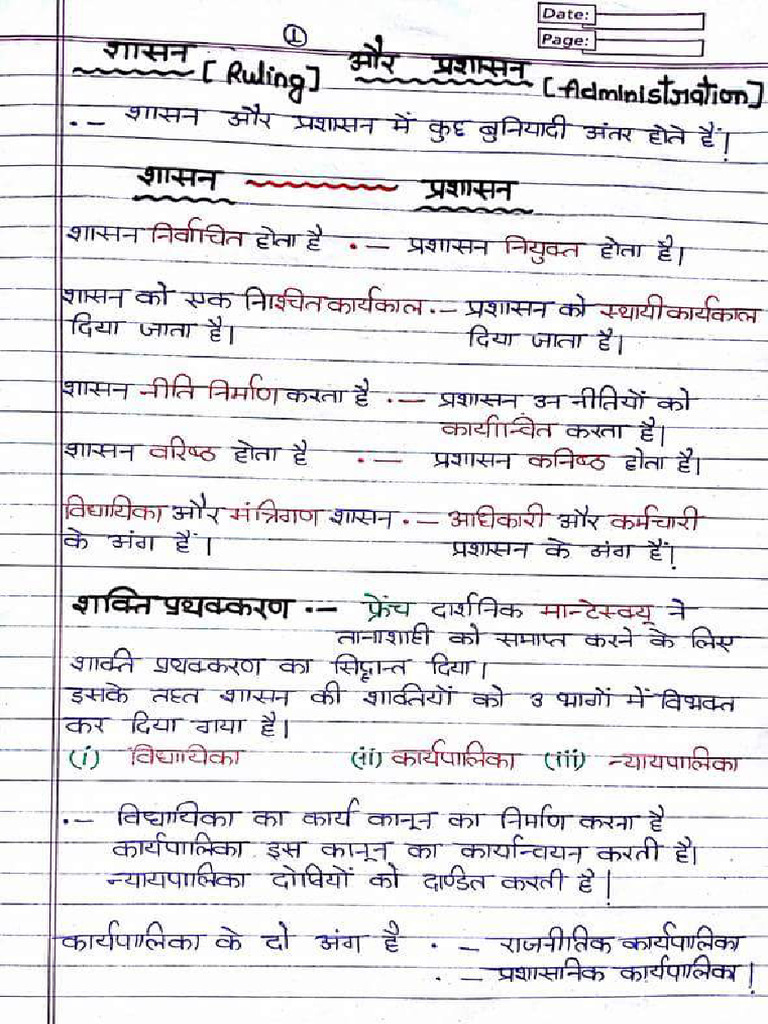 Date:
Page:
①
शासन [Ruling] और प्रशासन [Administration]
.— शासन और प्रशासन में कुछ बुनियादी अंतर होते हैं।
शासन प्रशासन
शासन निर्वाचित होता है .— प्रशासन नियुक्त होता है।
शासन को एक निश्चित कार्यकाल .— प्रशासन को स्थायी कार्यकाल
दिया जाता है। दिया जाता है।
शासन नीति निर्माण करता है .— प्रशासन उन नीतियों को
कार्यान्वित करता है।
शासन वरिष्ठ होता है .— प्रशासन कनिष्ठ होता है।
विधायिका और मंत्रिगण शासन .— अधिकारी और कर्मचारी
के अंग हैं। प्रशासन के अंग हैं।
शक्ति प्रथक्करण .— फ्रेंच दार्शनिक मान्टेस्क्यू ने
तानाशाही को समाप्त करने के लिए
शक्ति प्रथक्करण का सिद्धान्त दिया।
इसके तहत शासन की शक्तियों को 3 भागों में विभक्त
कर दिया गया है।
(i) विधायिका (ii) कार्यपालिका (iii) न्यायपालिका
.— विधायिका का कार्य कानून का निर्माण करना है
कार्यपालिका इस कानून का कार्यान्वयन करती है।
न्यायपालिका दोषियों को दण्डित करती है।
कार्यपालिका के दो अंग है . — राजनीतिक कार्यपालिका
. — प्रशासनिक कार्यपालिका।